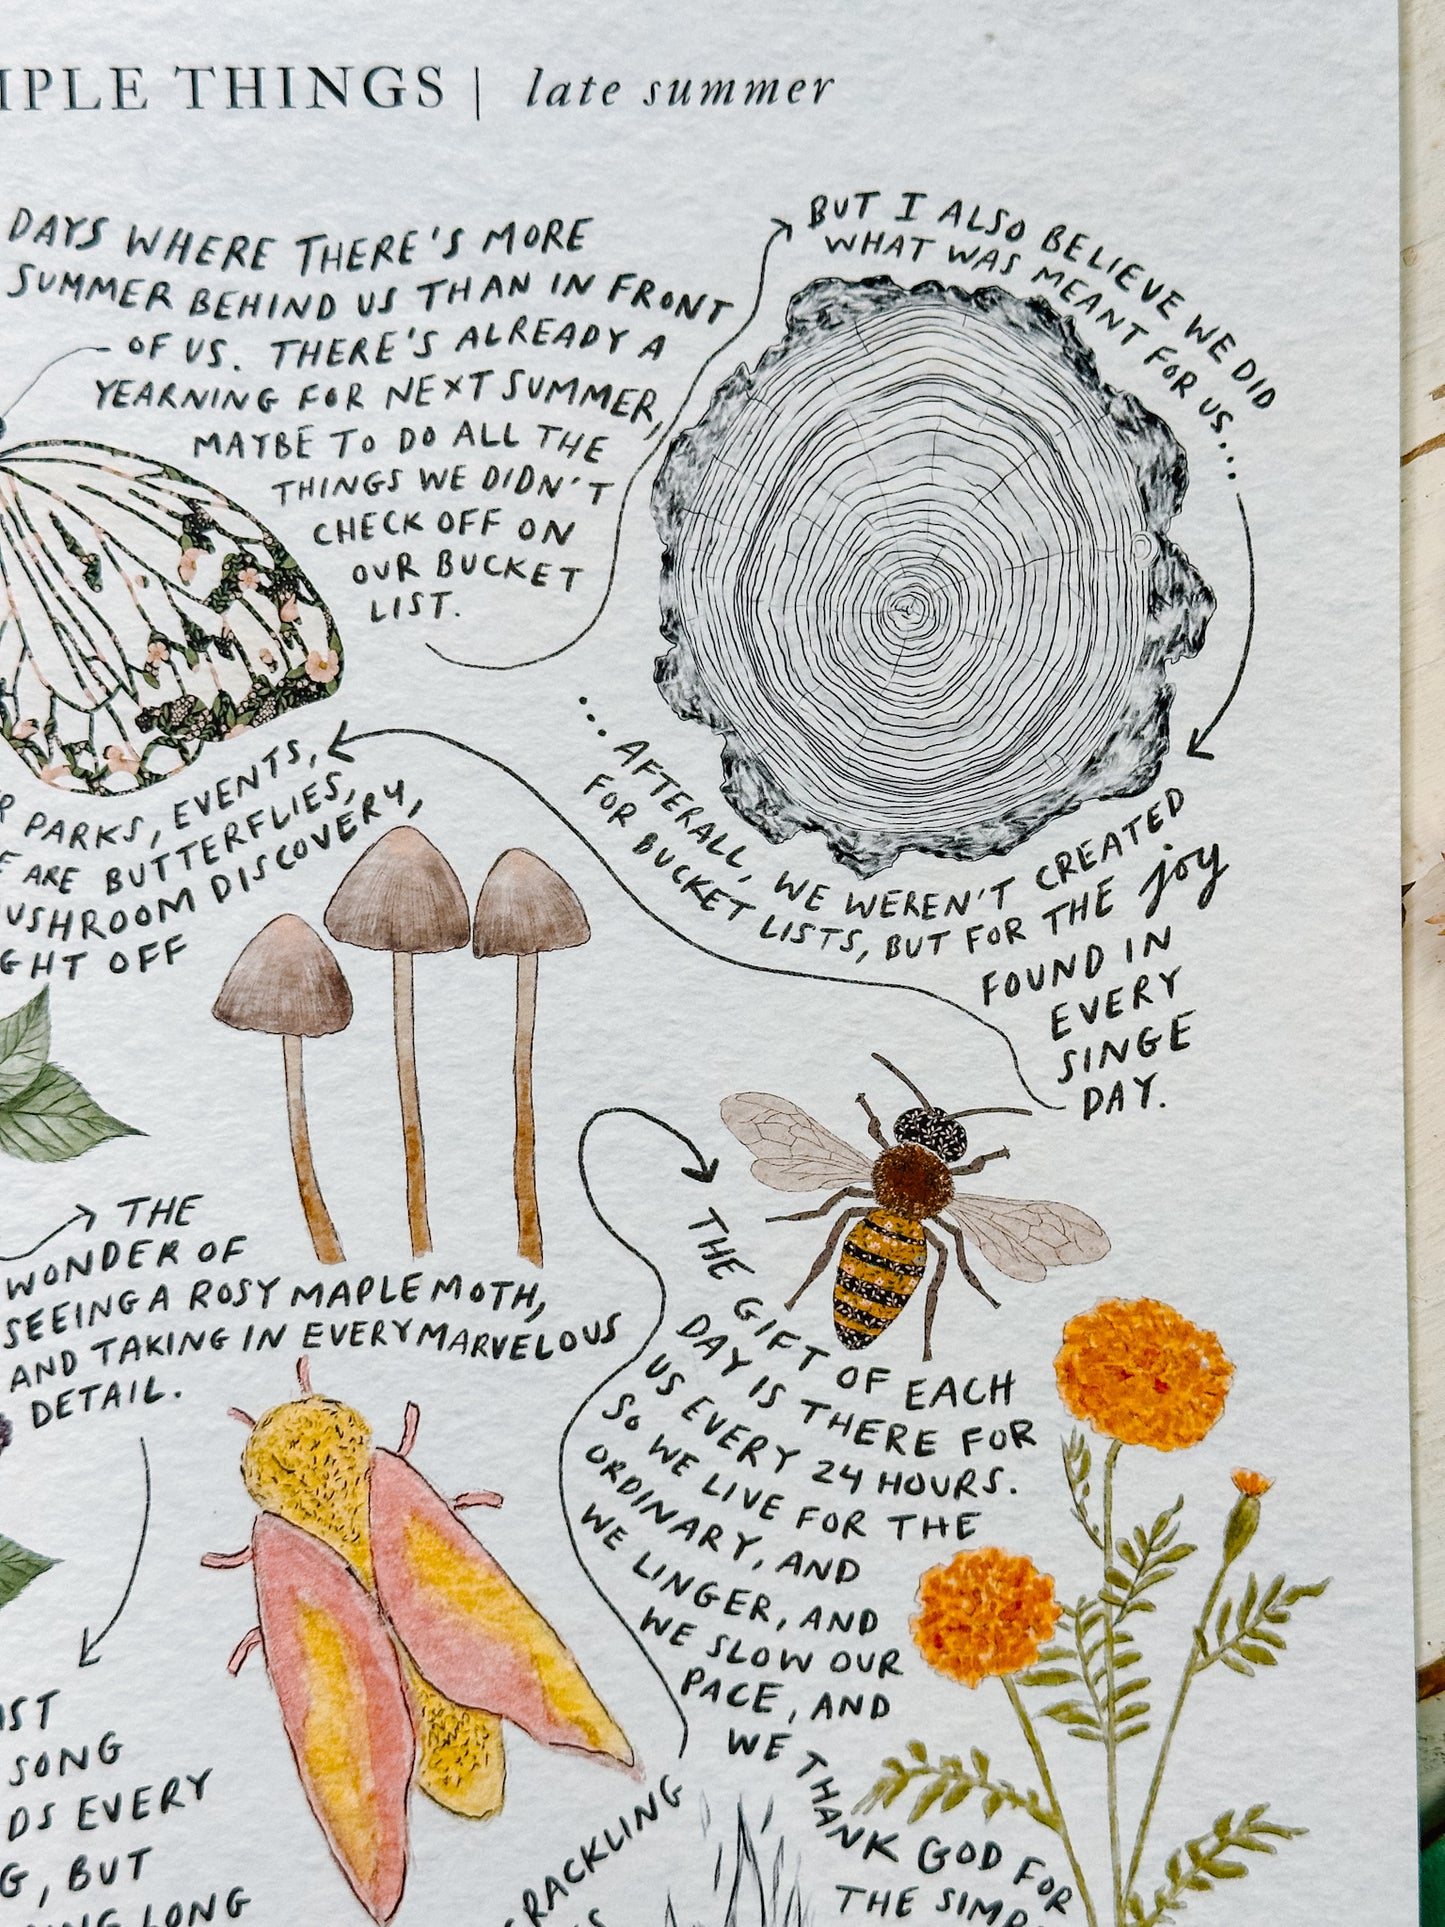 THINGS | late summer
DAYS WHERE THERE'S MORE
SUMMER BEHIND US THAN IN FRONT
OF US. THERE'S ALREADY A
YEARNING FOR NEXT SUMMER,
MAYBE TO DO ALL THE
THINGS WE DIDN'T
CHECK OFF ON
OUR BUCKET
LIST.
BUT I ALSO BELIEVE WE DID
WHAT WAS MEANT FOR US...
...AFTERALL, WE WEREN'T CREATED
FOR BUCKET LISTS, BUT FOR THE joy
FOUND IN
EVERY
SINGE
DAY.
PARKS, EVENTS,
ARE BUTTERFLIES,
MUSHROOM DISCOVERY,
OFF
THE
WONDER OF
SEEING A ROSY MAPLE MOTH,
AND TAKING IN EVERY MARVELOUS
DETAIL.
THE GIFT OF EACH
DAY IS THERE FOR
US EVERY 24 HOURS.
SO WE LIVE FOR THE
ORDINARY, AND
WE LINGER, AND
WE SLOW OUR
PACE, AND
WE THANK GOD FOR
THE
SONG
EVERY
, BUT
LONG
CRACKLING